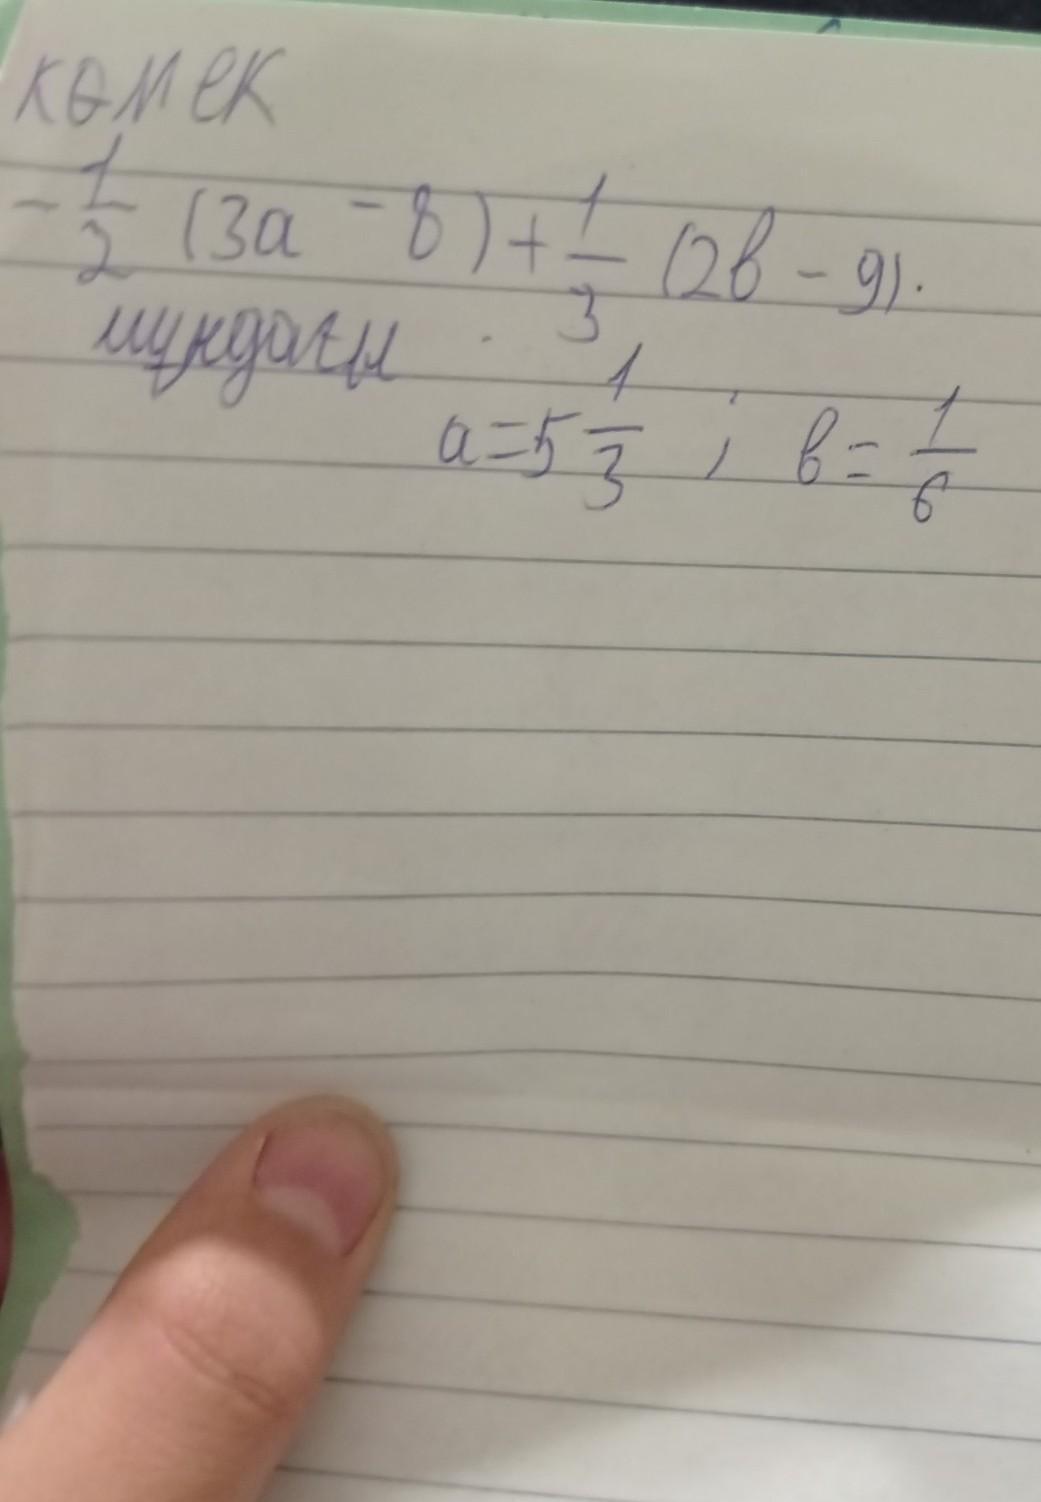 көмек
-1/2 (3a - 8) + 1/3 (2b - 9).
мұндағы
a=5 1/3 ; b= 1/6